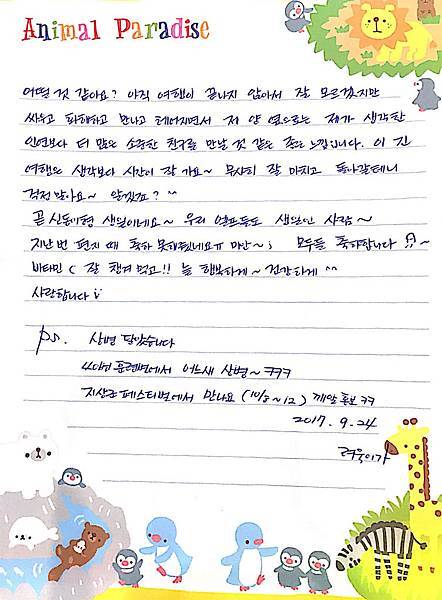 Animal Paradise
어떨 것 같아요? 아직 여행이 끝나지 않아서 잘 모르겠지만
싸우고 화해하고 만나고 헤어지면서 저 양 옆으로는 제가 생각한
인연보다 더 많은 소중한 친구를 만날 것 같은 좋은 느낌입니다. 이 긴
여행은 생각보다 시간이 잘 가요~ 무사히 잘 마치고 돌아갈테니
걱정 말아요~ 알겠죠? ^^
곧 신동이형 생일이네요~ 우리 엘프들도 생일인 사람~
지난번 편지 때 축하 못해줬네요ㅠ 미안~; 모두들 축하합니다 ~
비타민 C 잘 챙겨 먹고!! 늘 행복하게~ 건강하게 ^^
사랑합니다
ps. 상병 달았습니다
어느새 상병~ ㅋㅋㅋ
지상군페스티벌에서 만나요 (10/8~12) 깨알홍보 ㅋㅋ
2017. 9. 24
려욱이가